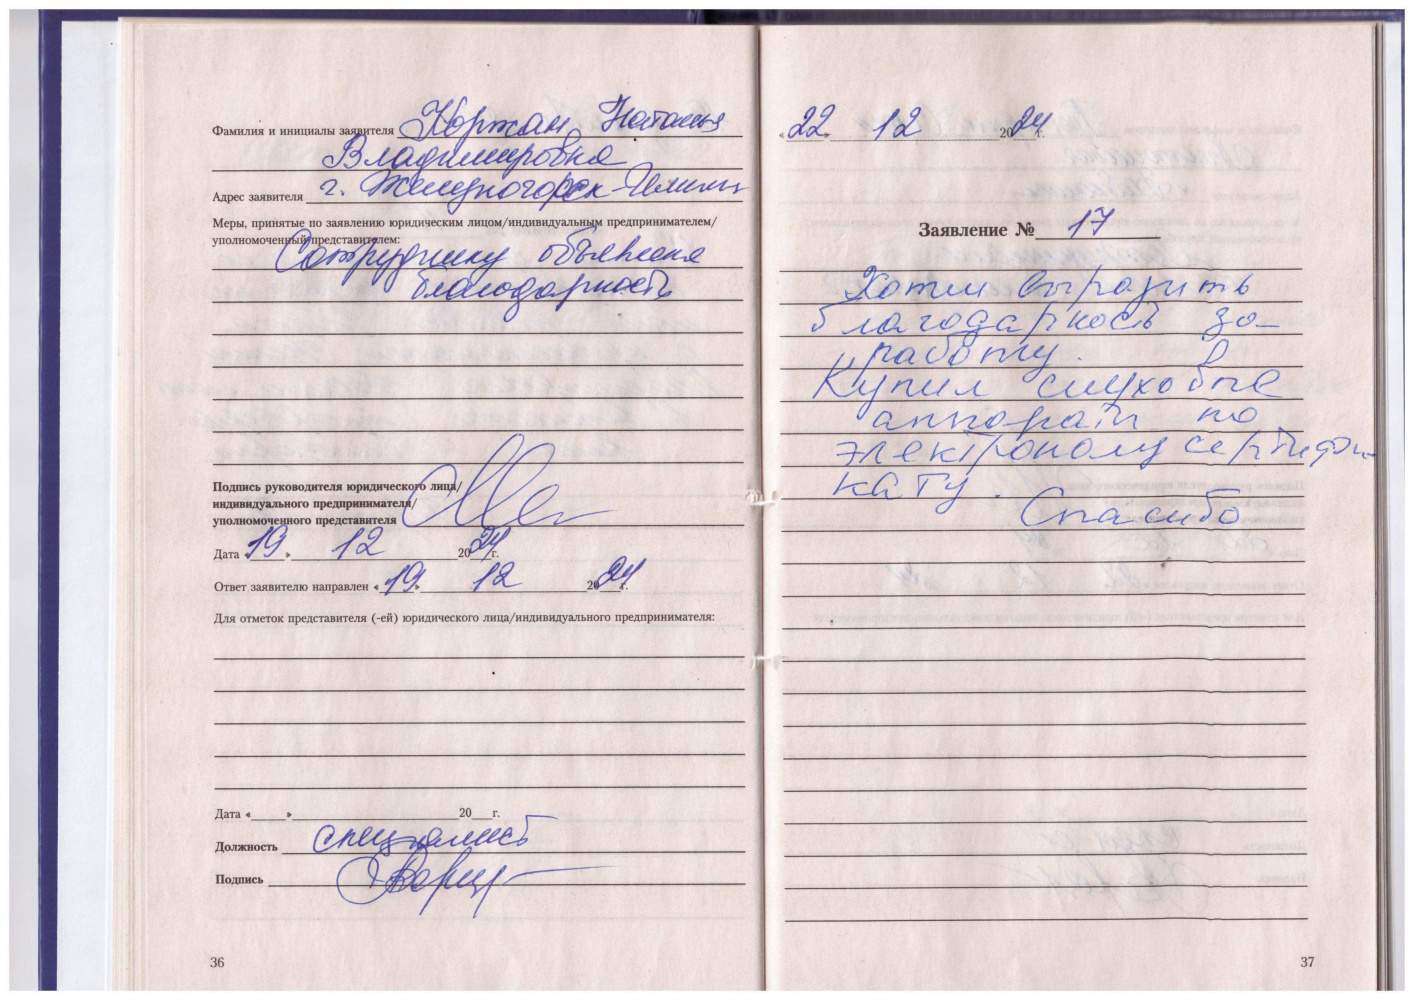 Фамилия и инициалы заявителя Коржан Наталья
Владимировна
Адрес заявителя г. Железногорск-Илимск
Меры, принятые по заявлению юридическим лицом/индивидуальным предпринимателем/
уполномоченный представителем:
Сотруднику объявлена
благодарность
Подпись руководителя юридического лица/
индивидуального предпринимателя/
уполномоченного представителя
Дата «19» 12 2024г.
Ответ заявителю направлен «19» 12 2024г.
Для отметок представителя (-ей) юридического лица/индивидуального предпринимателя:
Дата «    » 20    г.
Должность специалист
Подпись
36
«22» 12 2024г.
Заявление № 17
Хотим выразить
благодарность за
работу.
Купил слуховые
аппараты по
электроному сертифи-
кату.
Спасибо
37